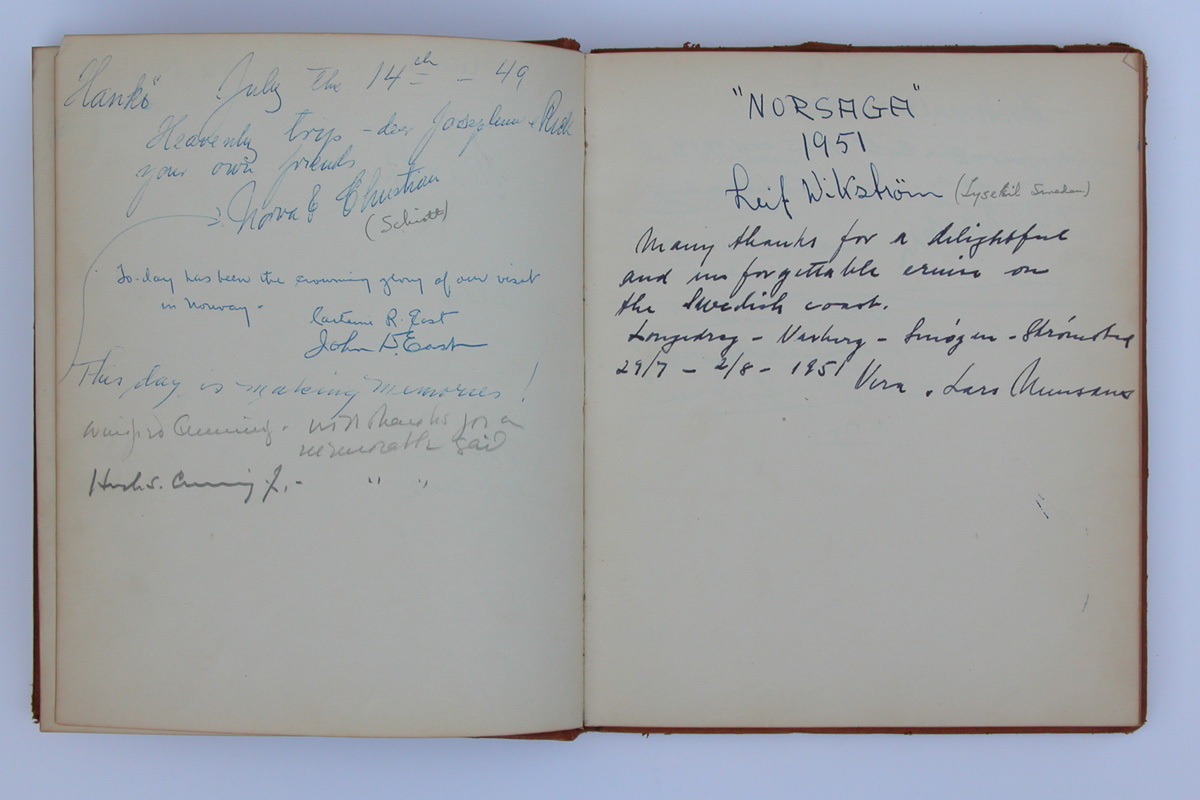 Hankö July the 14th - 49
Heavenly trip - dear Josephine & Rick
your own friends
Norva & Christian
(Schiött)
To-day has been the crowning glory of our visit
in Norway -
R. East
John D. East
This day is "making memories"!
Cunning - with thanks for a
memorable sail
Hugh S. Cunning Jr. - " "
"NORSAGA"
1951
Leif Wikström (Lysekil Sweden)
Many thanks for a delightful
and unforgettable cruise on
the Swedish coast.
Longedrag - Varberg - Smögen - Strömstad
29/7 - 2/8 - 1951 Vera . Lars